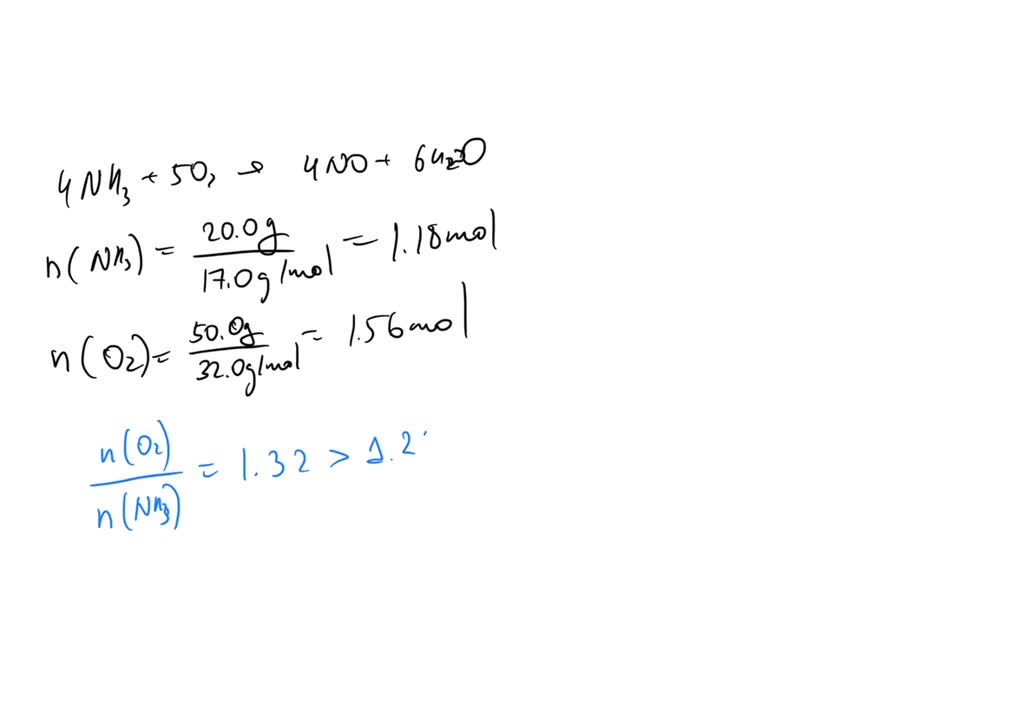 4NH₃ + 5O₂ → 4NO + 6H₂O
n(NH₃) = 20.0g / 17.0g/mol = 1.18mol
n(O₂) = 50.0g / 32.0g/mol = 1.56mol
n(O₂) / n(NH₃) = 1.32 > 1.2